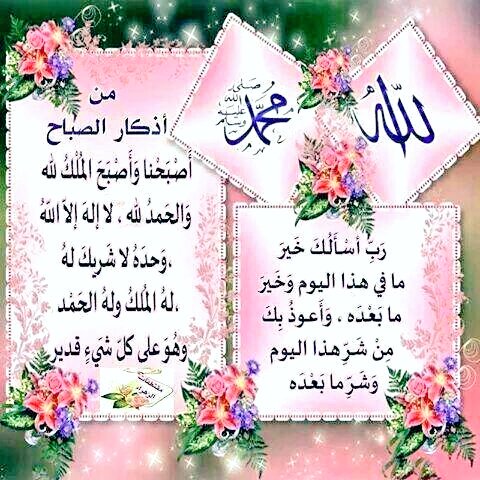 الله
محمد
صلى
الله
عليه
وسلم
من
أذكار الصباح
أَصْبَحْنا وَأَصْبَحَ المُلْكُ لله
وَالحَمدُ لله ، لا إلهَ إلاّ اللّهُ
،وَحدَهُ لا شَريكَ لهُ
،لهُ المُلكُ ولهُ الحَمْد
وهُوَ على كلّ شَيءٍ قدير
رَبِّ أسْأَلُكَ خَيرَ
ما في هذا اليوم وَخَيرَ
ما بَعْدَه ، وَأَعوذُ بِكَ
مِنْ شَرِّ هذا اليوم
وَشَرِّ ما بَعْدَه